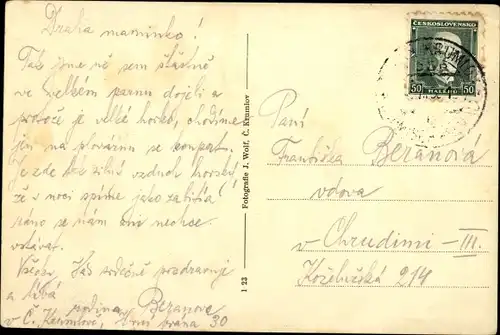 Drahá maminko!
Tak jsme ně sem šťastně
ve velkém parnu dojeli a
protože je velké horko, chodíme
jen na plovárnu se koupat.
Je zde silný vzduch horský,
že v noci spíme jako zabití a
ráno se nám ani nechce
vstávat.
Všichni Vás srdečně pozdravují
a líbá
rodina Beranova
v Č. Krumlově, Horní brána 30
Fotografie J. Wolf, Č. Krumlov
1 23
ČESKOSLOVENSKO
50 HALÉŘŮ 50
Paní
Františka Beranová
vdova
v Chrudimi - III.
Koželužská 214